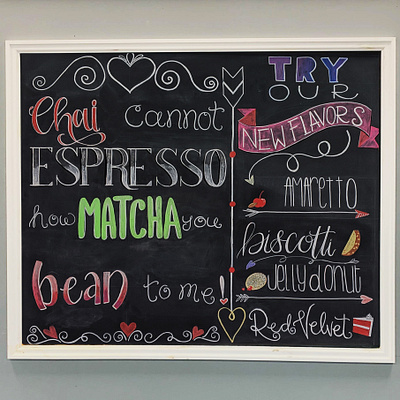 Chai cannot
ESPRESSO
how MATCHA you
bean to me!
TRY
OUR
NEW FLAVORS
AMARETTO
biscotti
Jelly donut
Red Velvet